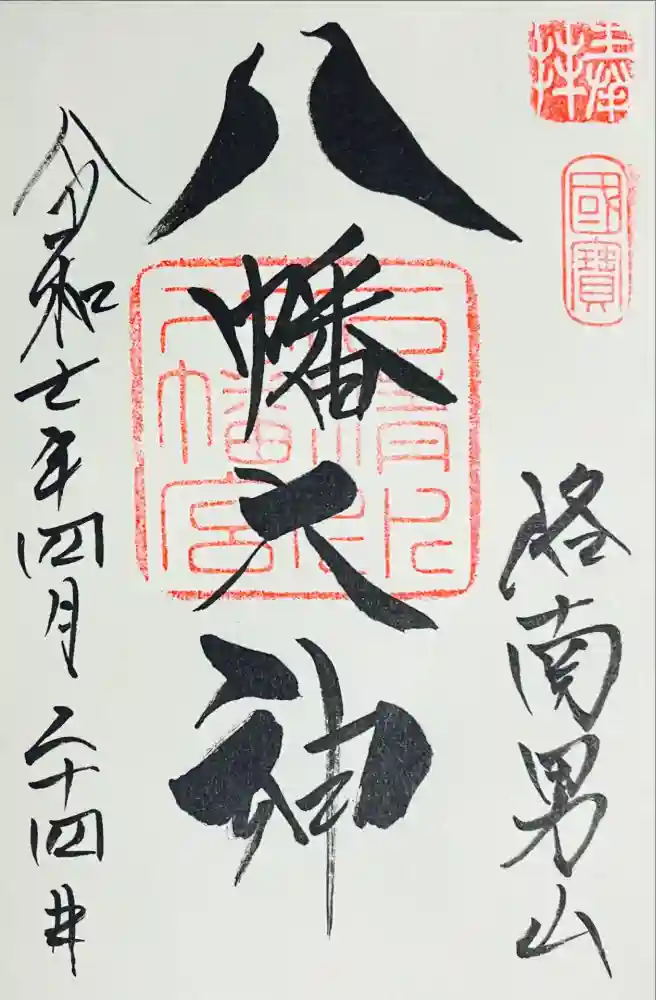 奉拝
國寶
洛南男山
八幡大神
石清水
八幡宮
令和七年四月二十四日